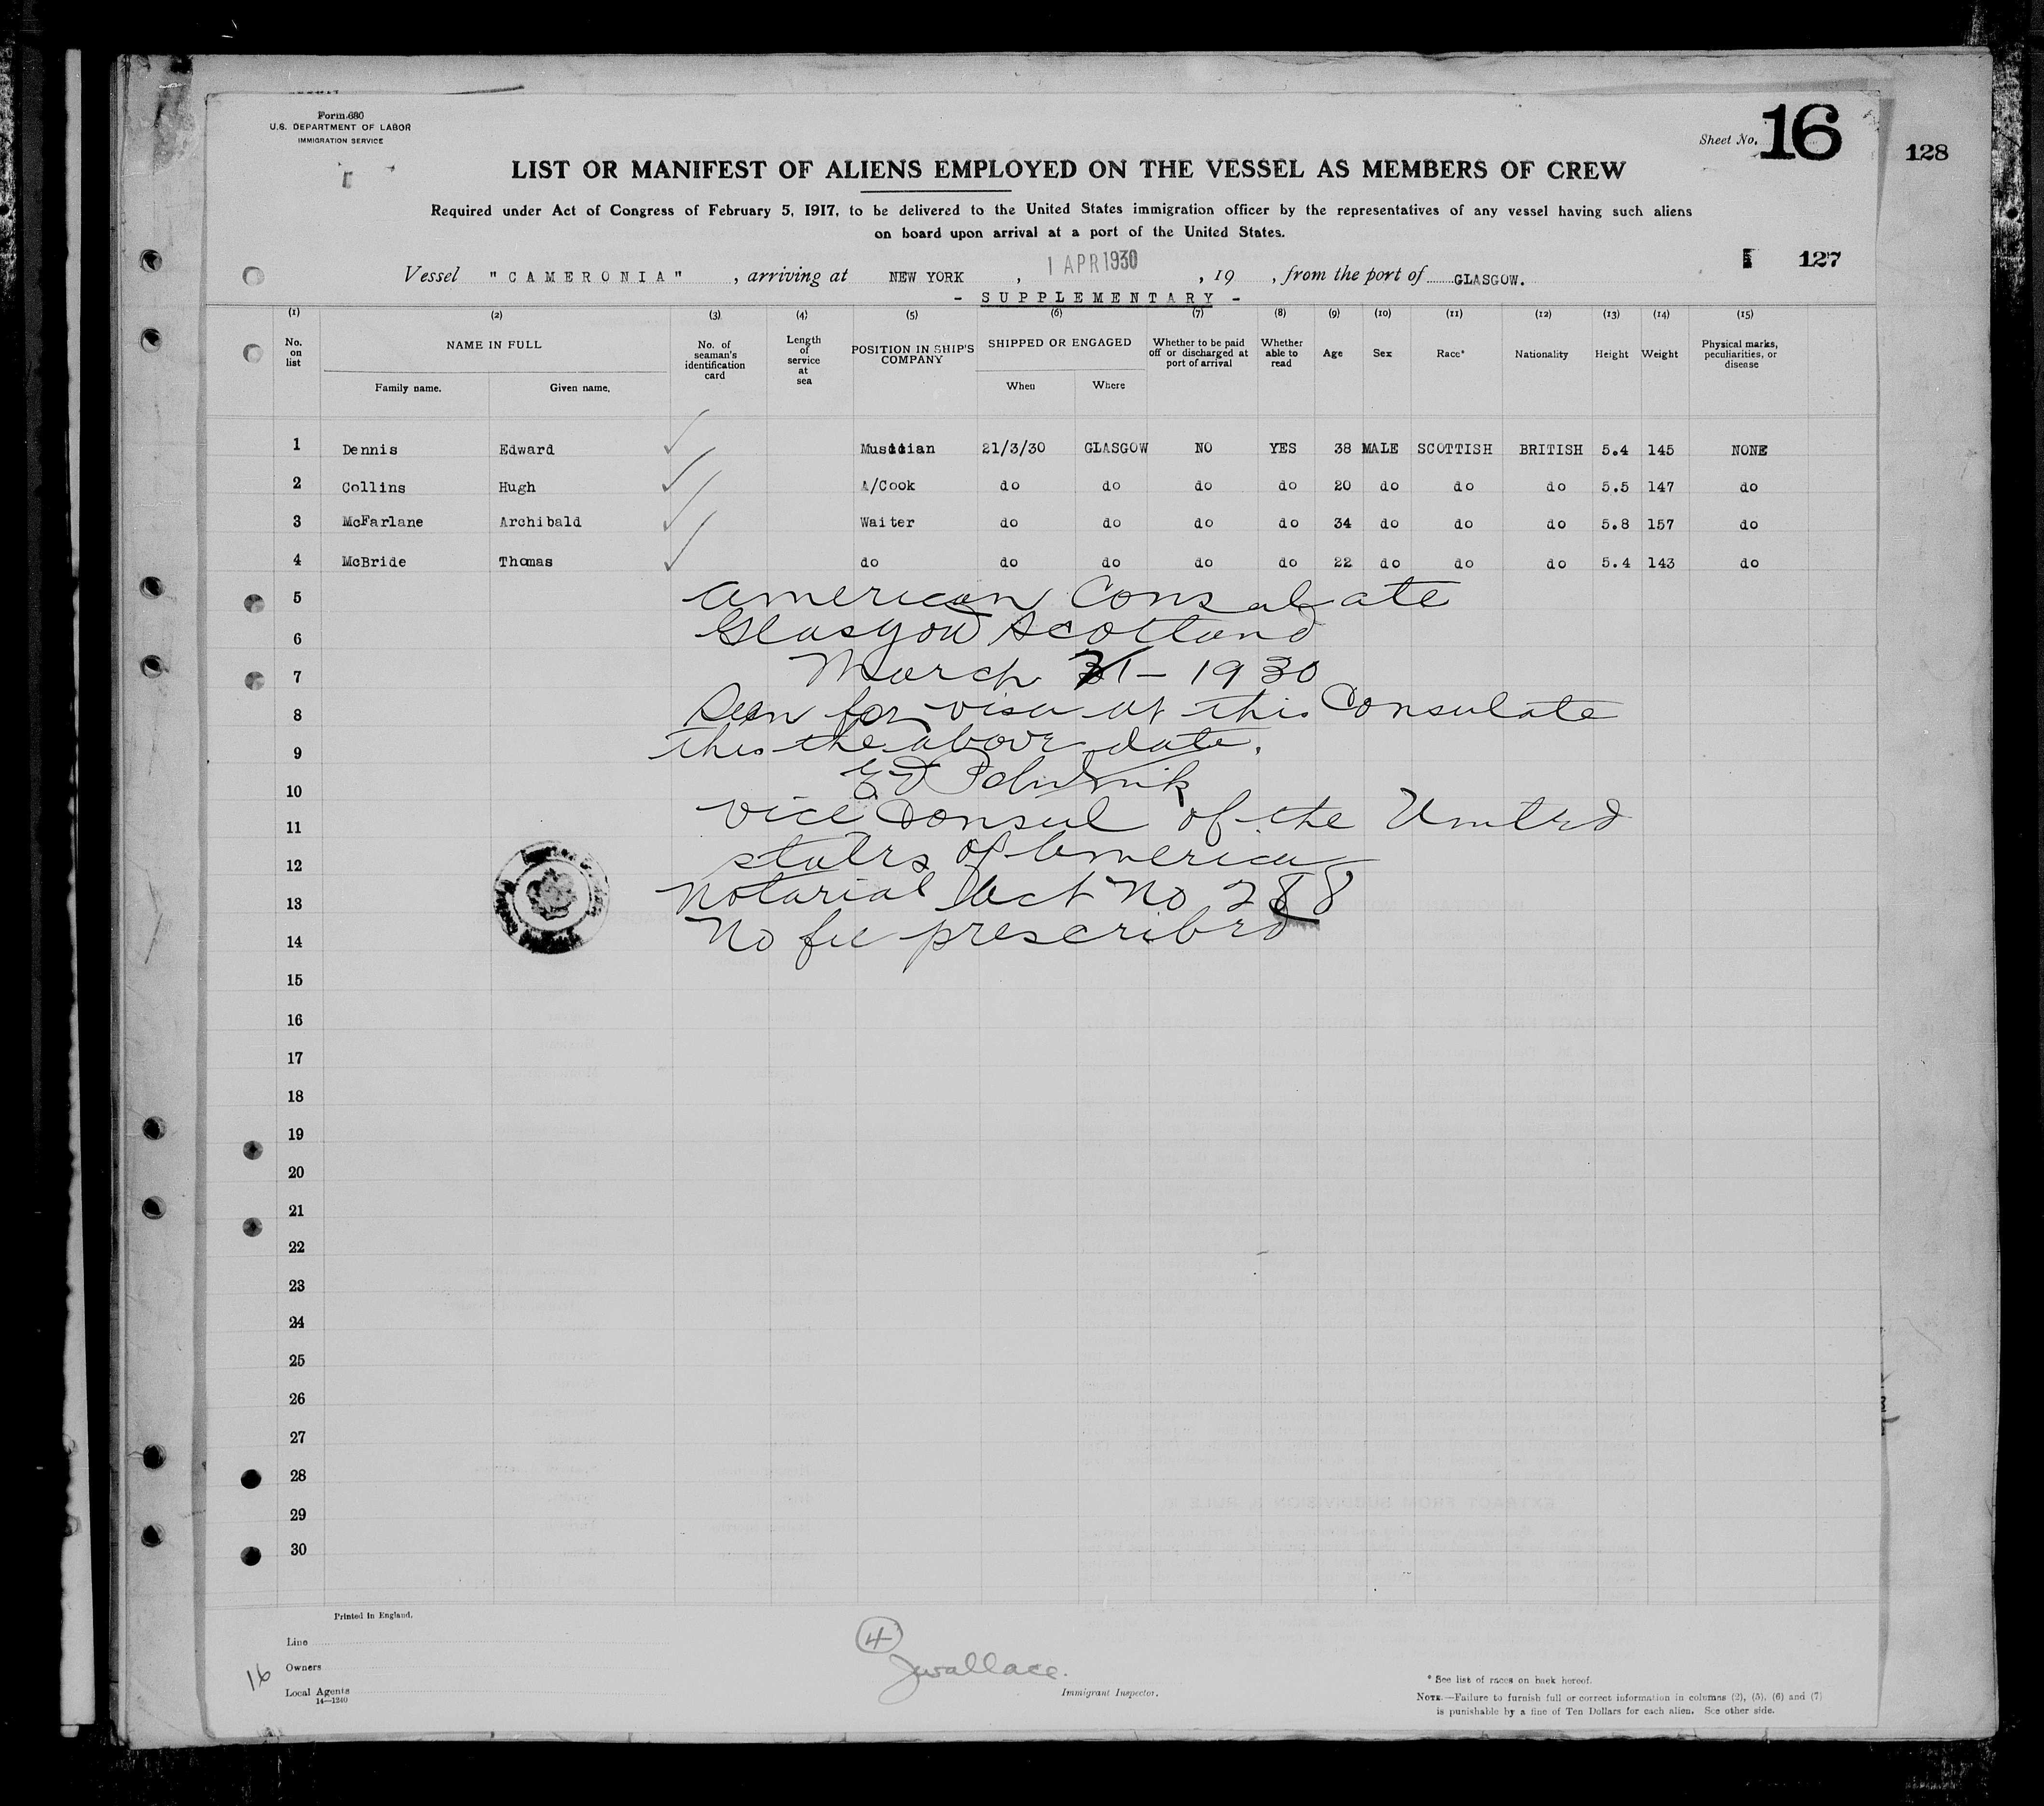 Form 680
U.S. DEPARTMENT OF LABOR
IMMIGRATION SERVICE
Sheet No. 16
128
LIST OR MANIFEST OF ALIENS EMPLOYED ON THE VESSEL AS MEMBERS OF CREW
Required under Act of Congress of February 5, 1917, to be delivered to the United States immigration officer by the representatives of any vessel having such aliens
on board upon arrival at a port of the United States.
127
Vessel "CAMERONIA", arriving at NEW YORK, 1 APR 1930, 19 , from the port of GLASGOW.
- SUPPLEMENTARY -
(1) (2) (3) (4) (5) (6) (7) (8) (9) (10) (11) (12) (13) (14) (15)
No. on list NAME IN FULL Family name. Given name. No. of seaman's identification card Length of service at sea POSITION IN SHIP'S COMPANY SHIPPED OR ENGAGED When Where Whether to be paid off or discharged at port of arrival Whether able to read Age Sex Race* Nationality Height Weight Physical marks, peculiarities, or disease
1 Dennis Edward Musician 21/3/30 GLASGOW NO YES 38 MALE SCOTTISH BRITISH 5.4 145 NONE
2 Collins Hugh A/Cook do do do do 20 do do do 5.5 147 do
3 McFarlane Archibald Waiter do do do do 34 do do do 5.8 157 do
4 McBride Thomas do do do do do 22 do do do 5.4 143 do
5 American Consulate
6 Glasgow Scotland
7 March 21 - 1930
8 Seen for visa at this Consulate
9 this the above date.
10
11 Vice Consul of the United
12 States of America
13 Notarial Act No 288
14 No fee prescribed
15
16
17
18
19
20
21
22
23
24
25
26
27
28
29
30
Printed in England.
Line
Owners
Local Agents
14—1240
16
4
JWallace.
Immigrant Inspector.
* See list of races on back hereof.
NOTE.—Failure to furnish full or correct information in columns (2), (5), (6) and (7)
is punishable by a fine of Ten Dollars for each alien. See other side.